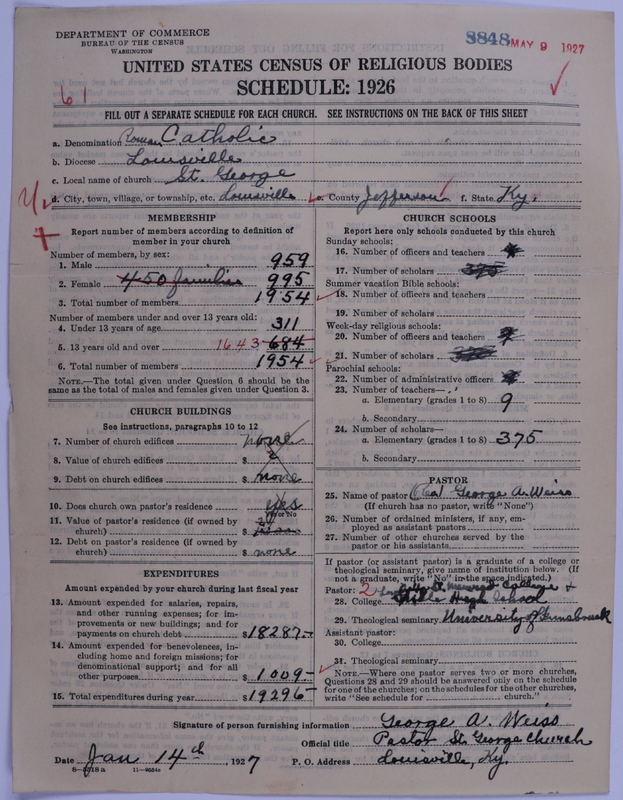 DEPARTMENT OF COMMERCE
BUREAU OF THE CENSUS
WASHINGTON
8848 MAY 9 1927
UNITED STATES CENSUS OF RELIGIOUS BODIES
SCHEDULE: 1926
61
FILL OUT A SEPARATE SCHEDULE FOR EACH CHURCH. SEE INSTRUCTIONS ON THE BACK OF THIS SHEET
a. Denomination Roman Catholic
b. Diocese Louisville
c. Local name of church St. George
d. City, town, village, or township, etc. Louisville e. County Jefferson f. State Ky.
MEMBERSHIP
Report number of members according to definition of member in your church
Number of members, by sex:
1. Male 959
2. Female 450 families 995
3. Total number of members 1954
Number of members under and over 13 years old:
4. Under 13 years of age 311
5. 13 years old and over 1643 684
6. Total number of members 1954
NOTE.—The total given under Question 6 should be the
same as the total of males and females given under Question 3.
CHURCH BUILDINGS
See instructions, paragraphs 10 to 12
7. Number of church edifices none
8. Value of church edifices $
9. Debt on church edifices $ none
10. Does church own pastor's residence yes
Yes or No
11. Value of pastor's residence (if owned by
church) $
12. Debt on pastor's residence (if owned by
church) $ none
EXPENDITURES
Amount expended by your church during last fiscal year
13. Amount expended for salaries, repairs,
and other running expenses; for im-
provements or new buildings; and for
payments on church debt $ 18287.—
14. Amount expended for benevolences, in-
cluding home and foreign missions; for
denominational support; and for all
other purposes 1009—
15. Total expenditures during year $ 19296—
CHURCH SCHOOLS
Report here only schools conducted by this church
Sunday schools:
16. Number of officers and teachers
17. Number of scholars 375
Summer vacation Bible schools:
18. Number of officers and teachers
19. Number of scholars
Week-day religious schools:
20. Number of officers and teachers 9
21. Number of scholars
Parochial schools:
22. Number of administrative officers
23. Number of teachers—
a. Elementary (grades 1 to 8) 9
b. Secondary
24. Number of scholars—
a. Elementary (grades 1 to 8) 375
b. Secondary
PASTOR
25. Name of pastor (Rev) George A. Weiss
(If church has no pastor, write "None")
26. Number of ordained ministers, if any, em-
ployed as assistant pastors
27. Number of other churches served by the
pastor or his assistants
If pastor (or assistant pastor) is a graduate of a college or
theological seminary, give name of institution below. (If
not a graduate, write "No" in the space indicated.)
Pastor: 2 College +
28. College High School
29. Theological seminary University of Innsbruck
Assistant pastor:
30. College
31. Theological seminary
NOTE.—Where one pastor serves two or more churches,
Questions 28 and 29 should be answered only on the schedule
for one of the churches; on the schedules for the other churches,
write "See schedule for church."
Signature of person furnishing information George A. Weiss
Official title Pastor St. George Church
Date Jan 14th 1927 P. O. Address Louisville, Ky.
8—5318a 11—9684